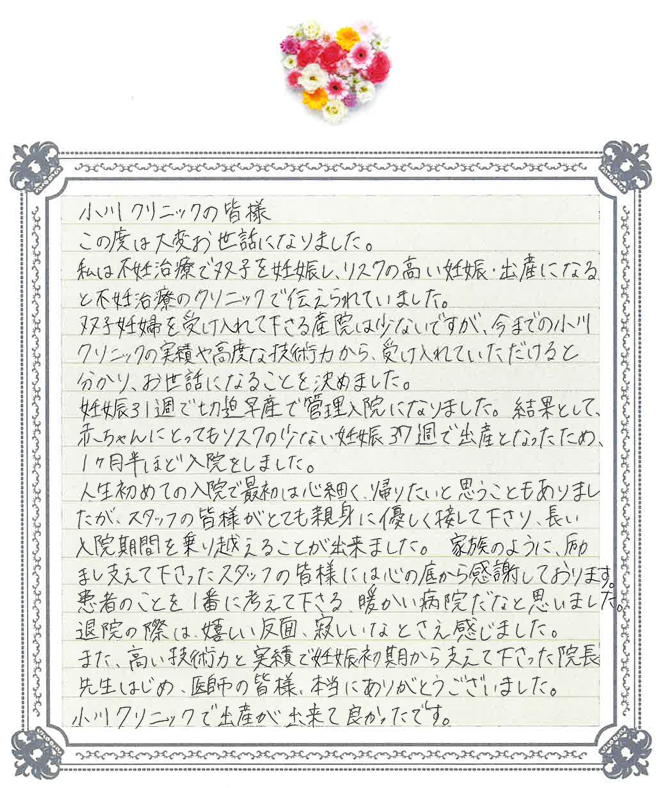 小川クリニックの皆様
この度は大変お世話になりました。
私は不妊治療で双子を妊娠し、リスクの高い妊娠・出産になる
と不妊治療のクリニックで伝えられていました。
双子妊婦を受け入れて下さる産院は少ないですが、今までの小川
クリニックの実績や高度な技術力から、受け入れていただけると
分かり、お世話になることを決めました。
妊娠31週で切迫早産で管理入院になりました。結果として、
赤ちゃんにとってもリスクの少ない妊娠37週で出産となったため、
1ヶ月半ほど入院をしました。
人生初めての入院で最初は心細く、帰りたいと思うこともありまし
たが、スタッフの皆様がとても親身に優しく接して下さり、長い
入院期間を乗り越えることが出来ました。家族のように、励
まし支えて下さったスタッフの皆様には心の底から感謝しております。
患者のことを1番に考えて下さる、暖かい病院だなと思いました。
退院の際は、嬉しい反面、寂しいなとさえ感じました。
また、高い技術力と実績で妊娠初期から支えて下さった院長
先生はじめ、医師の皆様、本当にありがとうございました。
小川クリニックで出産が出来て良かったです。